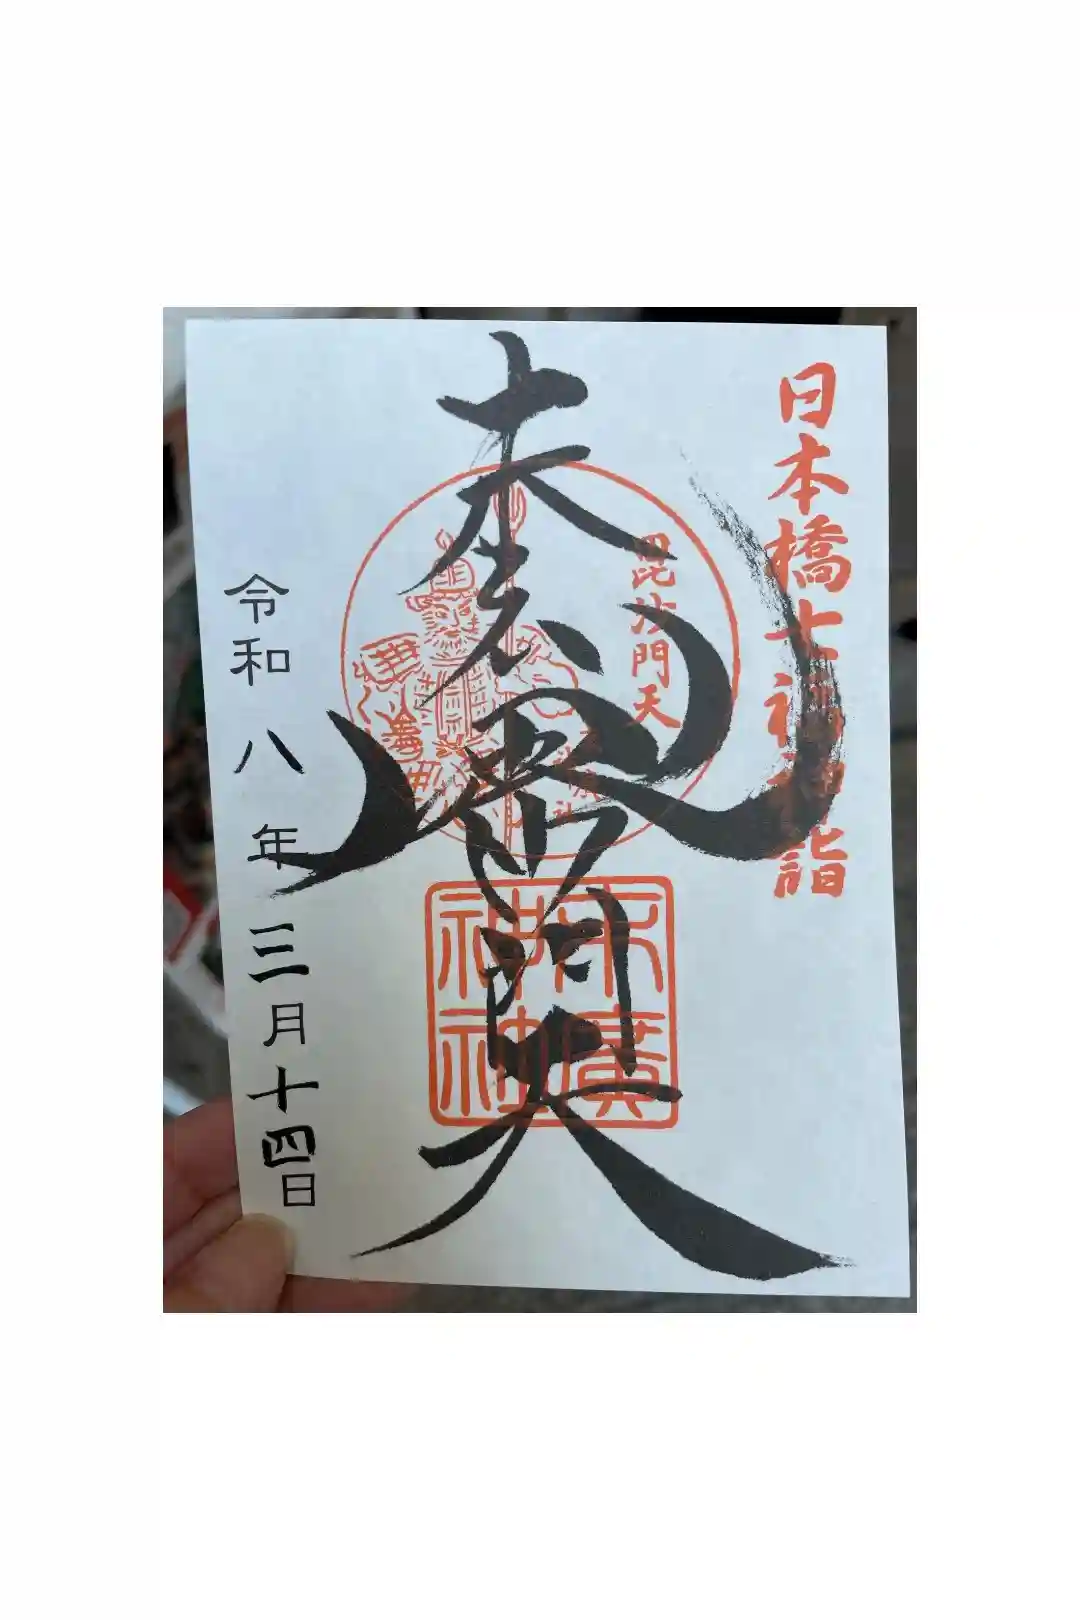 日本橋七福神詣
毘沙門天
末廣
神社
門天
令和八年三月十四日